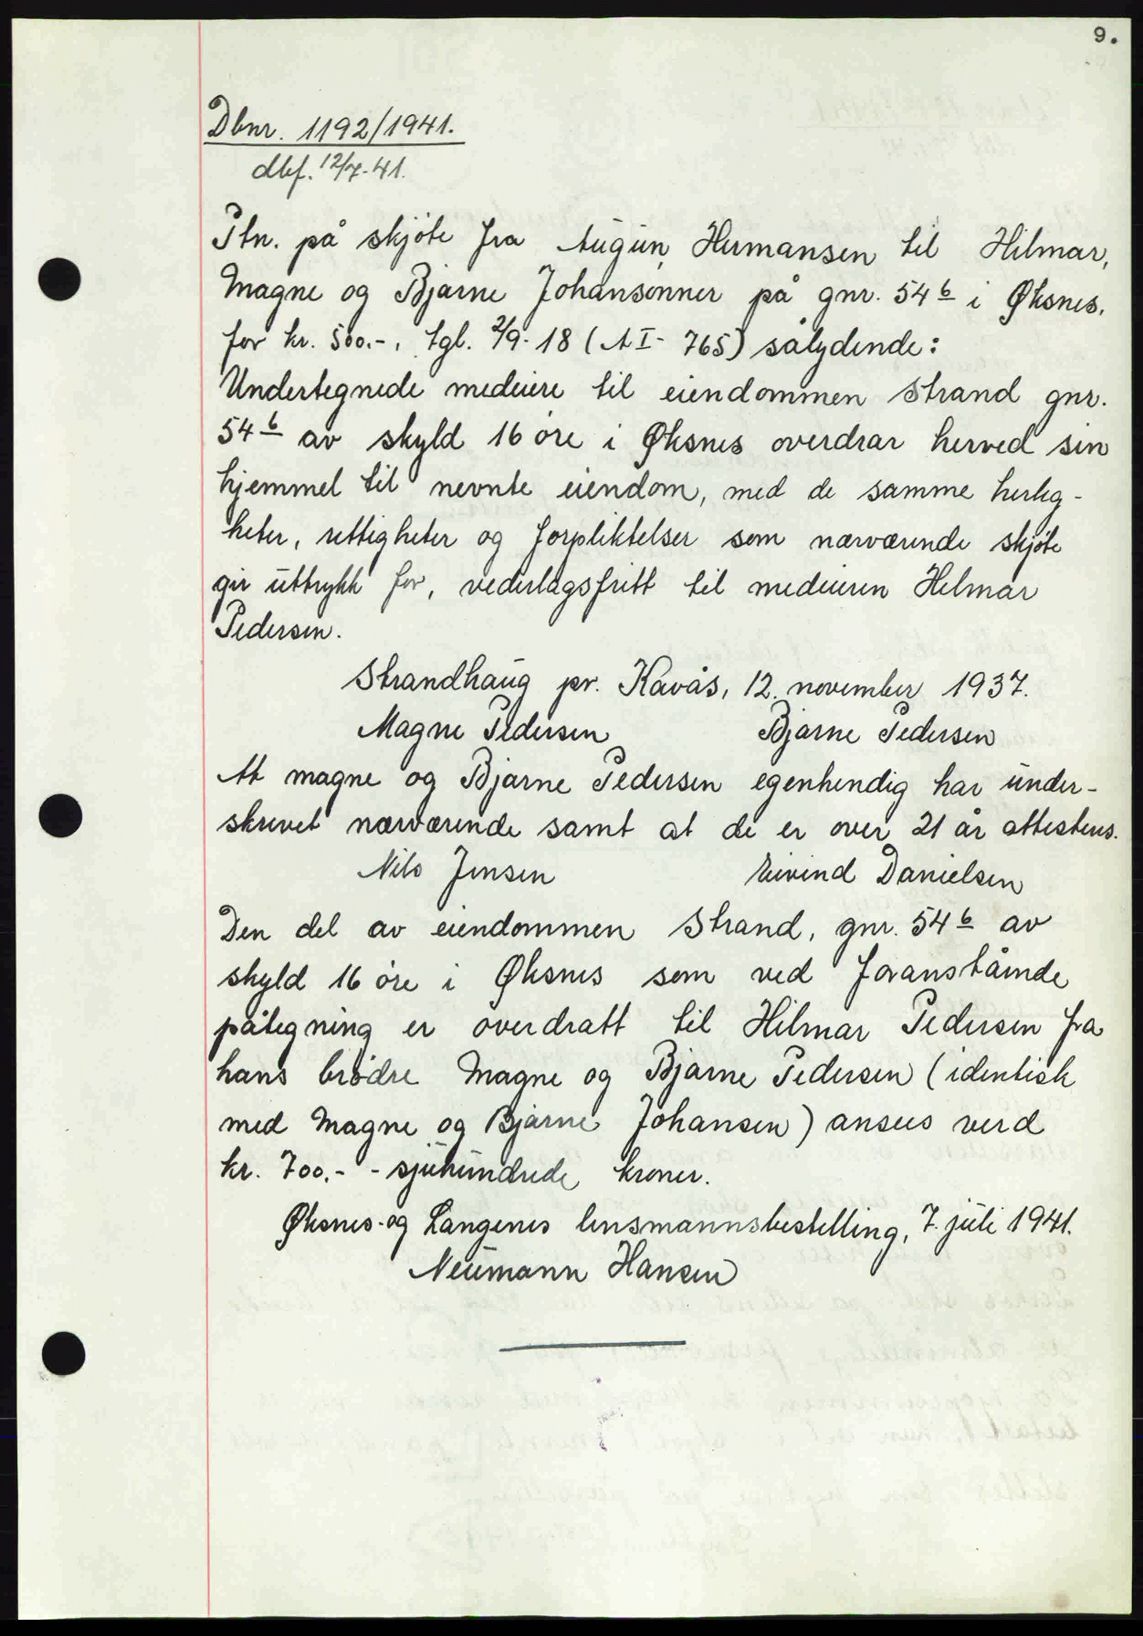 9.
Dbnr. 1192/1941.
dbf. 12/7-41.
Ptn. på skjøte fra Augun Hermansen til Hilmar,
Magne og Bjarne Johansønner på gnr. 54 6 i Øksnes,
for kr. 500.-, tgl. 2/9-18 (A I- 765) sålydende:
Undertegnede medeiere til eiendommen Strand gnr.
54 6 av skyld 16 øre i Øksnes overdrar herved sin
hjemmel til nevnte eiendom, med de samme herlig-
heter, rettigheter og forpliktelser som nærværende skjøte
gir uttrykk for, vederlagsfritt til medeieren Hilmar
Pedersen.
Strandhaug pr. Kavås, 12. november 1937.
Magne Pedersen Bjarne Pedersen
At Magne og Bjarne Pedersen egenhendig har under-
skrevet nærværende samt at de er over 21 år attesteres.
Nils Jensen Eivind Danielsen
Den del av eiendommen Strand, gnr. 54 6 av
skyld 16 øre i Øksnes som ved foranstående
påtegning er overdratt til Hilmar Pedersen fra
hans brødre Magne og Bjarne Pedersen (identisk
med Magne og Bjarne Johansen) ansees verd
kr. 700.- - sjuhundrede kroner.
Øksnes- og Langenes lensmannsbestilling, 7. juli 1941.
Neumann Hansen